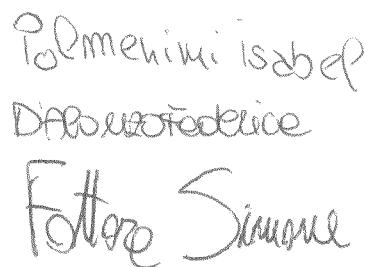 Polmenimi isabel
D'Alouzo Federice
Fattore Simone